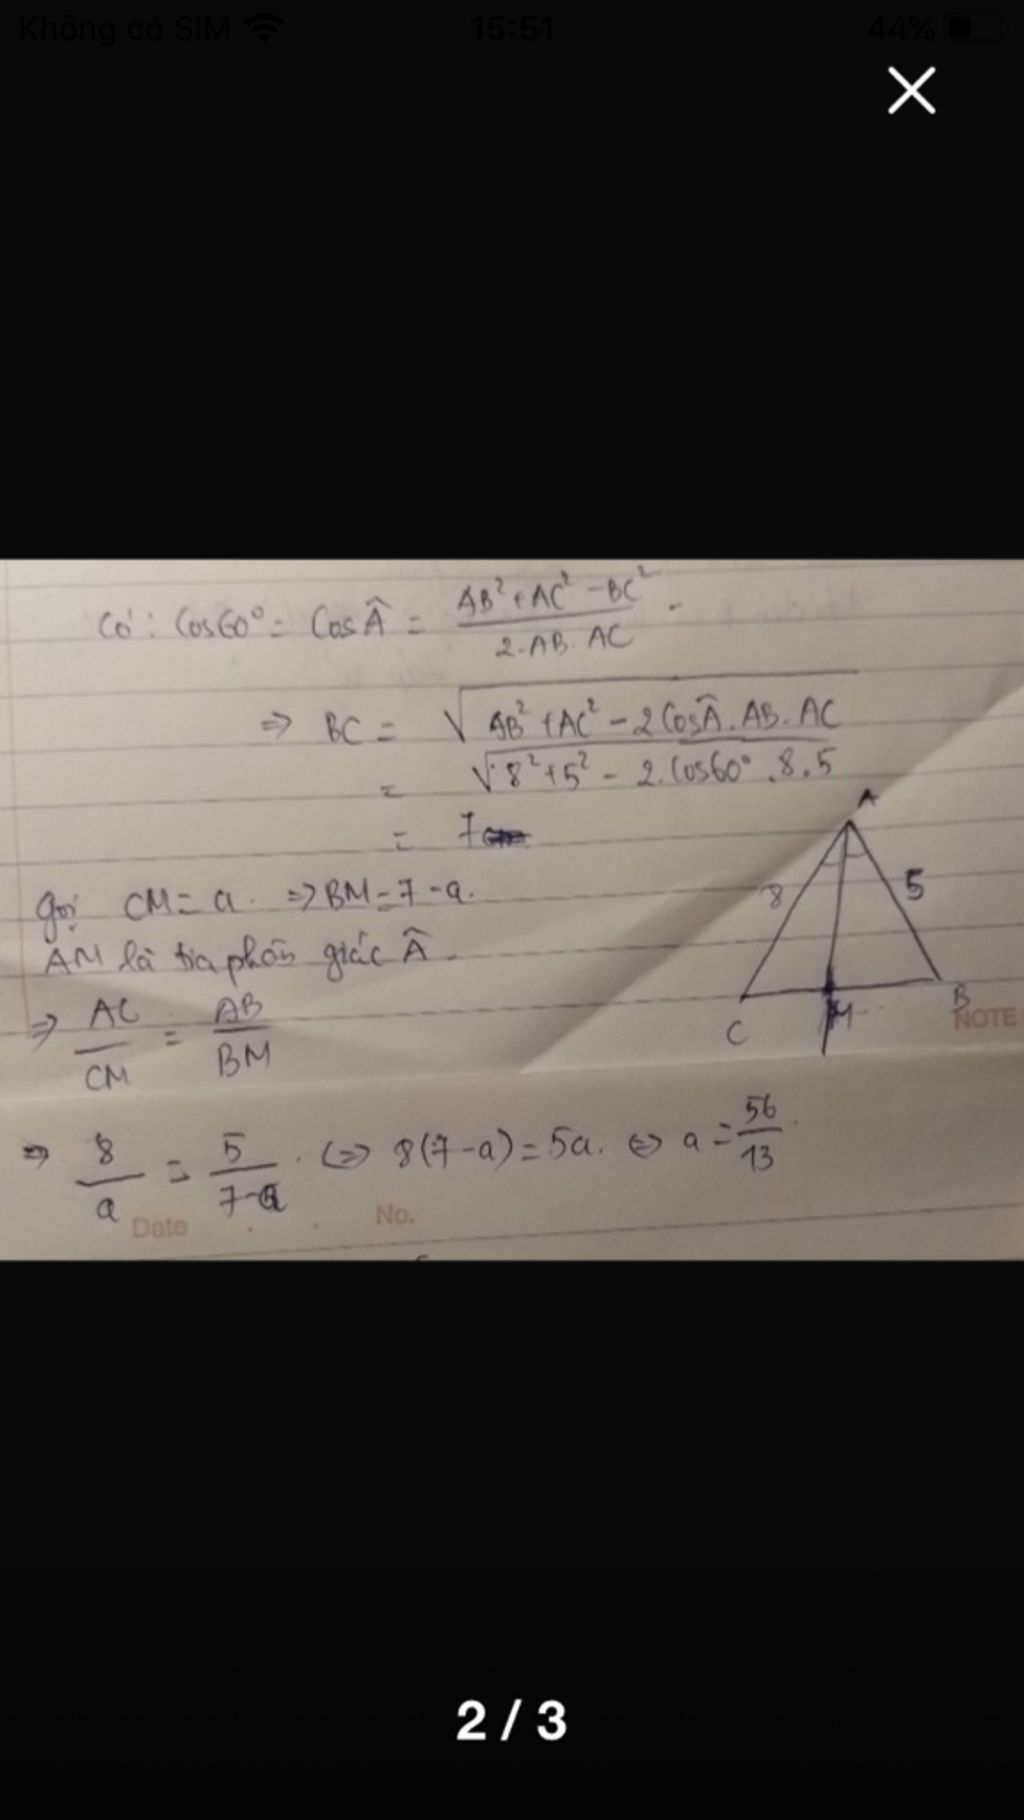 Không có SIM 15:51 44%
Có: Cos60° = Cos Â = (AB² + AC² - BC²) / (2.AB.AC) .
⇒ BC = √(AB² + AC² - 2 Cos Â . AB . AC)
= √(8² + 5² - 2.Cos60° . 8 . 5)
= 7
A
8 5
C M B
gọi CM = a. ⇒ BM = 7 - a.
AM là tia phân giác Â.
⇒ AC / CM = AB / BM
⇒ 8 / a = 5 / (7-a) . ⇔ 8(7-a) = 5a. ⇔ a = 56 / 13 .
NOTE
Date . . No.
2 / 3